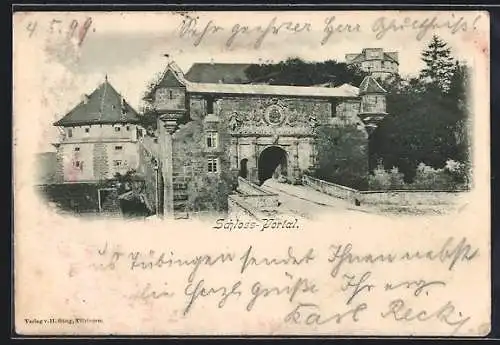 4 5. 99. Sehr geehrter Herr
Schloss-Portal.
Aus Tübingen sendet Ihnen nebst
herzl. Grüße Ihr erg.
Karl Reck.
Verlag v. H. Sting, Tübingen.